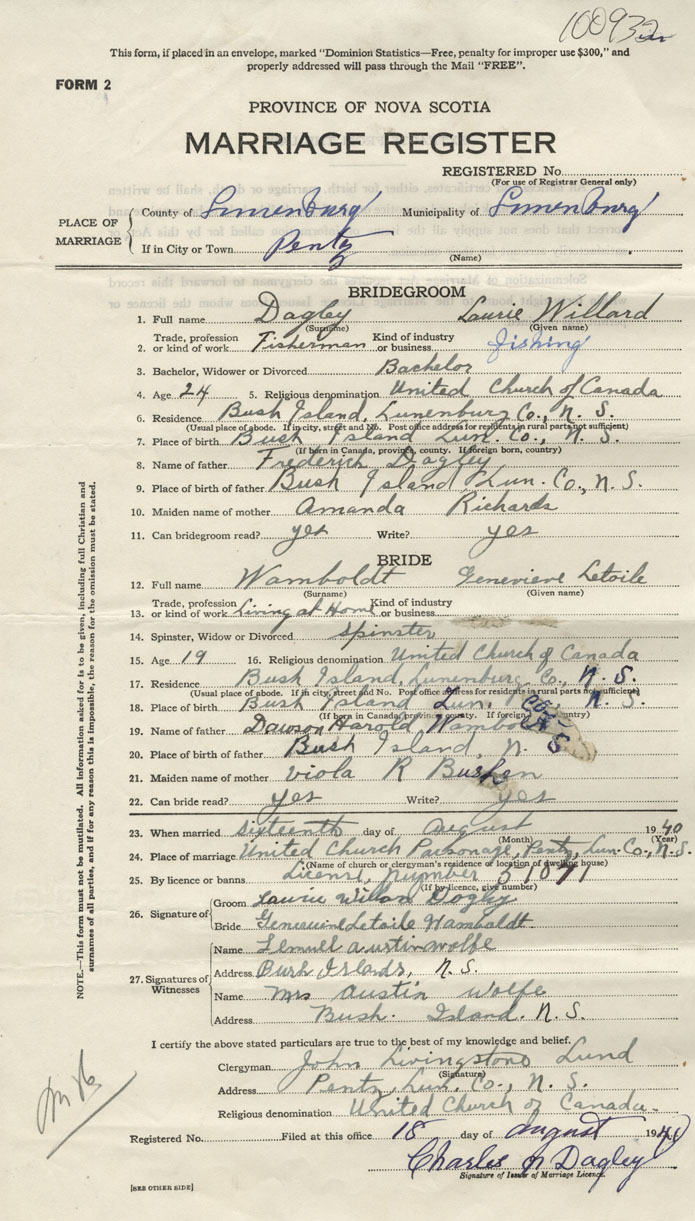 100932
This form, if placed in an envelope, marked "Dominion Statistics—Free, penalty for improper use $300," and
properly addressed will pass through the Mail "FREE".
FORM 2
PROVINCE OF NOVA SCOTIA
MARRIAGE REGISTER
REGISTERED No.
(For use of Registrar General only)
PLACE OF MARRIAGE
County of Lunenburg Municipality of Lunenburg
If in City or Town Pentz
(Name)
BRIDEGROOM
1. Full name Dagley Laurie Willard
(Surname) (Given name)
2. Trade, profession or kind of work Fisherman Kind of industry or business fishing
3. Bachelor, Widower or Divorced Bachelor
4. Age 24 5. Religious denomination United Church of Canada
6. Residence Bush Island, Lunenburg Co., N. S.
(Usual place of abode. If in city, street and No. Post office address for residents in rural parts not sufficient)
7. Place of birth Bush Island Lun. Co., N. S.
(If born in Canada, province, county. If foreign born, country)
8. Name of father Frederick Dagley
9. Place of birth of father Bush Island Lun. Co., N. S.
10. Maiden name of mother Amanda Richards
11. Can bridegroom read? yes Write? yes
BRIDE
12. Full name Wamboldt Genevieve Letoile
(Surname) (Given name)
13. Trade, profession or kind of work Living at Home Kind of industry or business
14. Spinster, Widow or Divorced Spinster
15. Age 19 16. Religious denomination United Church of Canada
17. Residence Bush Island, Lunenburg Co., N. S.
(Usual place of abode. If in city, street and No. Post office address for residents in rural parts not sufficient)
18. Place of birth Bush Island Lun. Co., N. S.
(If born in Canada, province, county. If foreign born, country)
19. Name of father Dawson Harold Wamboldt
20. Place of birth of father Bush Island, N. S
21. Maiden name of mother Viola R Bushen
22. Can bride read? yes Write? yes
23. When married sixteenth day of August 1940
(Month) (Year)
24. Place of marriage United Church Parsonage, Pentz, Lun. Co., N. S.
(Name of church or clergyman's residence or location of dwelling house)
25. By licence or banns License, number 51071
(If by licence, give number)
26. Signature of
Groom Laurie Willard Dagley
Bride Genevieve Letoile Wamboldt
27. Signatures of Witnesses
Name Lemuel austin wolfe
Address Bush Islands, N. S.
Name Mrs Austin Wolfe
Address Bush. Island. N. S.
I certify the above stated particulars are true to the best of my knowledge and belief.
Clergyman John Livingstone Lund
(Signature)
Address Pentz, Lun. Co., N. S.
Religious denomination United Church of Canada.
Registered No. Filed at this office 18 day of August 1940
Charles Dagley
Signature of Issuer of Marriage Licence.
[SEE OTHER SIDE]
NOTE.—This form must not be mutilated. All information asked for is to be given, including full Christian and
surnames of all parties, and if for any reason this is impossible, the reason for the omission must be stated.